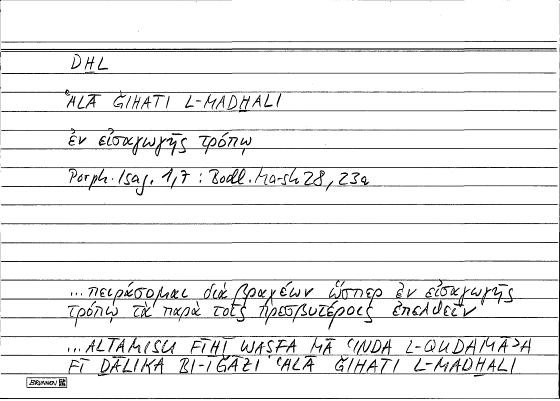 DḪL
ʿALĀ ǦIHATI L-MADḪALI
ἐν εἰσαγωγῆς τρόπῳ
Porph. Isag. 1,7 : Bodl. Marsh 28, 23a
...πειράσομαι διὰ βραχέων ὥσπερ ἐν εἰσαγωγῆς
τρόπῳ τὰ παρὰ τοῖς πρεσβυτέροις ἐπελθεῖν
...ALTAMISU FĪHĪ WASFA MĀ ʿINDA L-QUDAMĀʾA
FĪ ḎĀLIKA BI-IǦĀZI ʿALĀ ǦIHATI L-MADḪALI
BRUNNEN